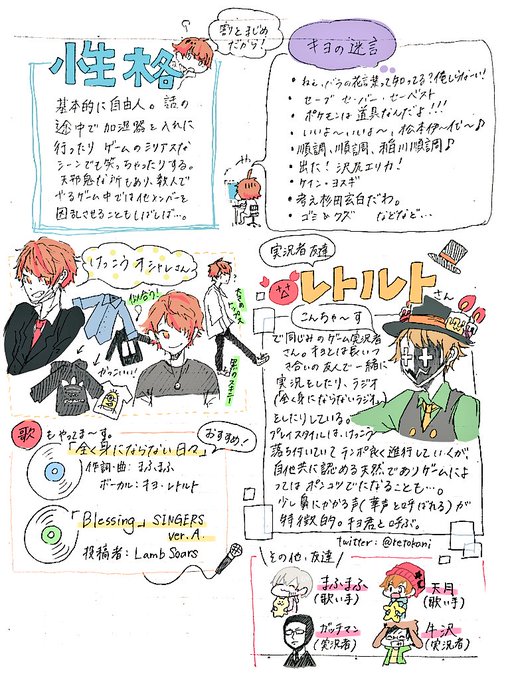 割とまじめだから!
性格
基本的に自由人。話の
途中で加湿器を入れに
行ったり ゲームのシリアスな
シーンでも笑っちゃったりする。
天邪鬼な所もあり、数人で
やるゲーム中では他メンバーを
困乱させることもしばしば…。
キヨの迷言
• ねぇ、バラの花言葉って知ってる?俺しらな〜い!
• セーブ セーバー セーベスト
• ポケモンは道具なんだよ!!!
• いいよ〜いいよ〜、松本伊〜代〜♪
• 順調、順調、稲川順調♪
• 出た!沢尻エリカ!
• ケイン・ヨスギ
• 考え杉田玄白だわ。
• ゴミ&クズ などなど…
けっこうオシャレさん
似合う!
かっこいい!
黒のスキニー
実況者友達
レトルトさん
こんちゃ〜す
で同じみのゲーム実況者
さん。キヨとは長いつ
き合いの友人で一緒に
実況をしたり、ラジオ
(全く身にならないラジオ)
をしたりしている。
プレイスタイルは、けっこう
落ち付いていて テンポ良く進行していくが、
自他共に認める天然でありゲームによ
ってはポンコツでになることも…。
少し鼻にかかる声(鼻声と呼ばれる)が
特徴的。キヨ君と呼ぶ。
twitter: @retokani
歌もやってま〜す。
おすすめ!
「全く身にならない日々」
作詞・曲: まふまふ
ボーカル: キヨ・レトルト
「Blessing」SINGERS
ver.A.
投稿者: Lamb Soars
その他・友達
まふまふ
(歌い手)
天月
(歌い手)
ガッチマン
(実況者)
牛沢
(実況者)